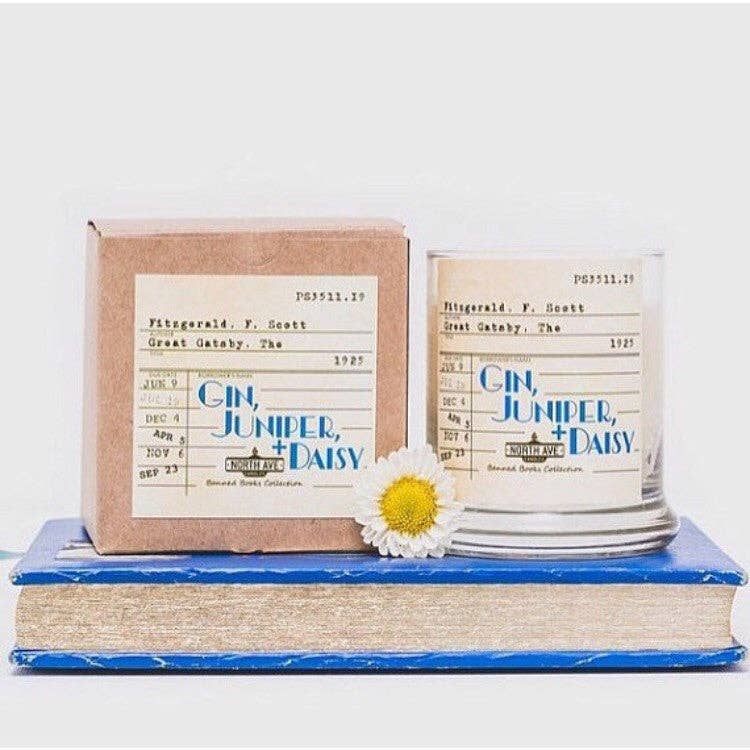 PS3511.I9
Fitzgerald, F. Scott
AUTHOR
Great Gatsby, The
TITLE
1925
DATE DUE BORROWER'S NAME
JUN 9
JUL 19
DEC 4
APR 5
NOV 6
SEP 23
GIN,
JUNIPER,
+DAISY
NORTH AVE
CANDLES
Banned Books Collection
PS3511.I9
Fitzgerald, F. Scott
Great Gatsby, The
1925
JUN 9
DEC 4
APR 5
NOV 6
SEP 23
GIN,
JUNIPER,
+DAISY
NORTH AVE
Banned Books Collection